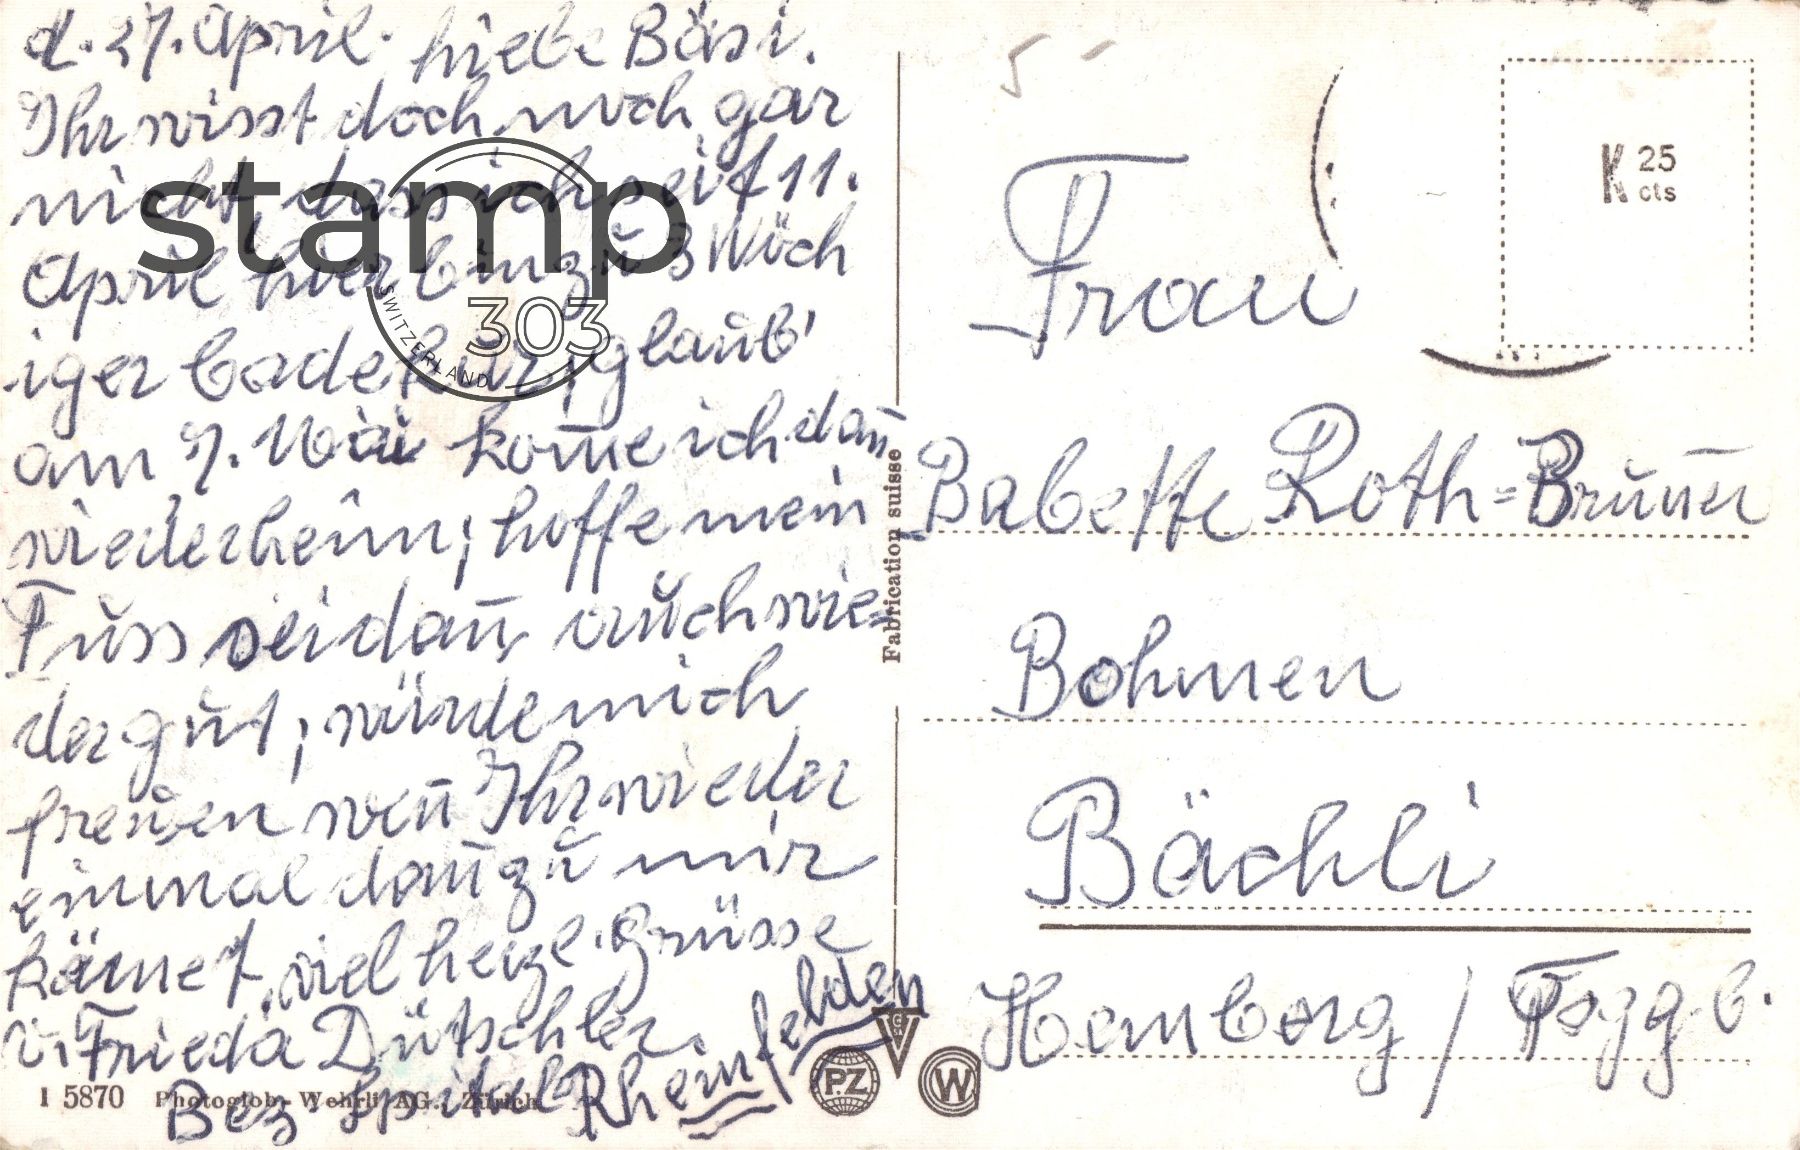 d. 27. April. Liebe Bäsi.
Ihr wisst doch noch gar
nicht, dass ich seit 11.
April hier bin zu 3 Wöch
iger Badekur, glaub'
am 7. Mai kom̄e ich dan̄
wiederheim; hoffe mein
Fuss sei dan̄ auch wie=
der gut; würde mich
freuen wen̄ Ihr wieder
einmal dan̄ zu mir
kämet, viel herzl. Grüsse
v. Frieda Dütschler.
Bez Spital Rheinfelden
5 -
Frau
Babette Roth=Bruner
Bohmen
Bächli
Hemberg / Toggb.
K 25
cts
Fabrication suisse
I 5870 Photoglob-Wehrli AG., Zürich
P.Z
V
G
SA
W
stamp
303
SWITZERLAND